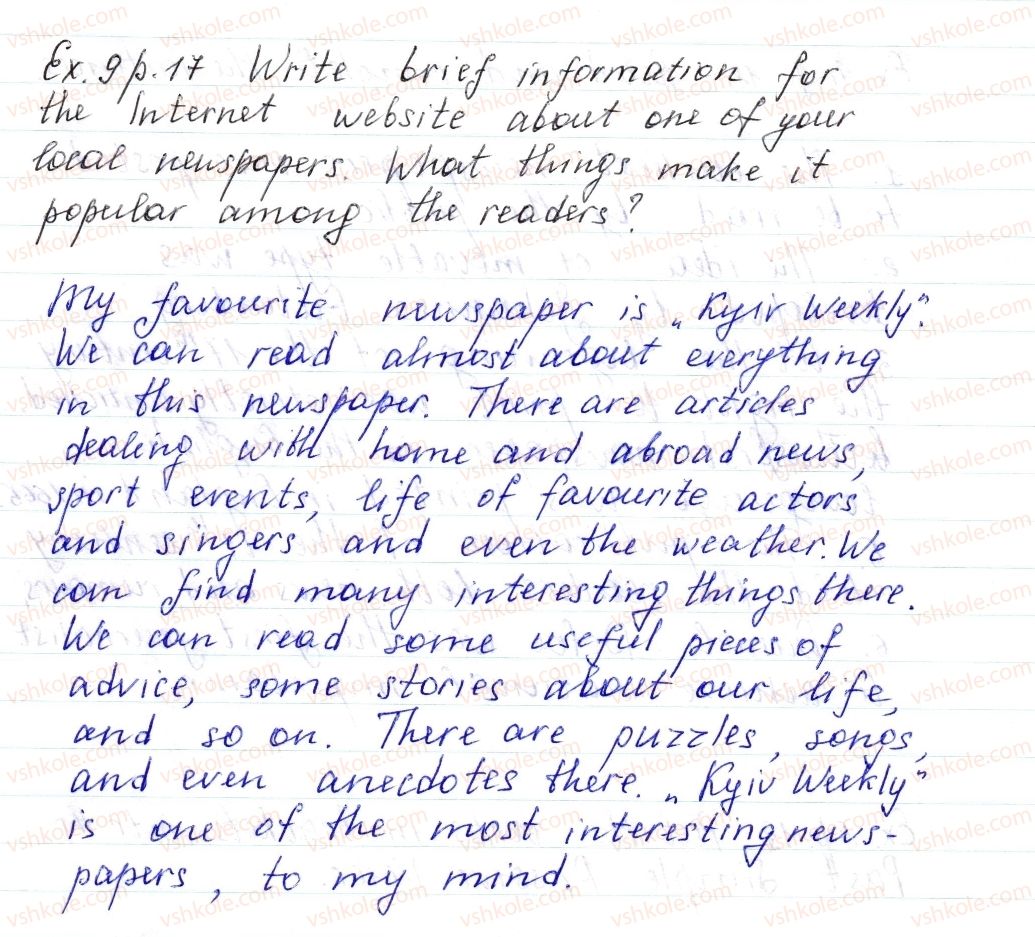 Ex. 9 p. 17 Write brief information for
the Internet website about one of your
local newspapers. What things make it
popular among the readers?
My favourite newspaper is „Kyiv Weekly".
We can read almost about everything
in this newspaper. There are articles
dealing with home and abroad news,
sport events, life of favourite actors
and singers and even the weather. We
can find many interesting things there.
We can read some useful pieces of
advice, some stories about our life,
and so on. There are puzzles, songs,
and even anecdotes there. „Kyiv Weekly"
is one of the most interesting news-
papers, to my mind.